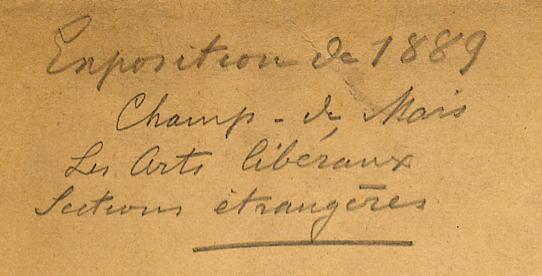 Exposition de 1889
Champ-de Mars
Les Arts libéraux
Sections étrangères